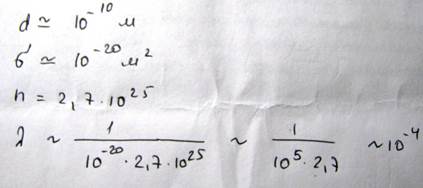 d ≃ 10⁻¹⁰ м
σ ≃ 10⁻²⁰ м²
n = 2,7·10²⁵
λ ~ 1/(10⁻²⁰·2,7·10²⁵) ~ 1/(10⁵·2,7) ~10⁻⁴